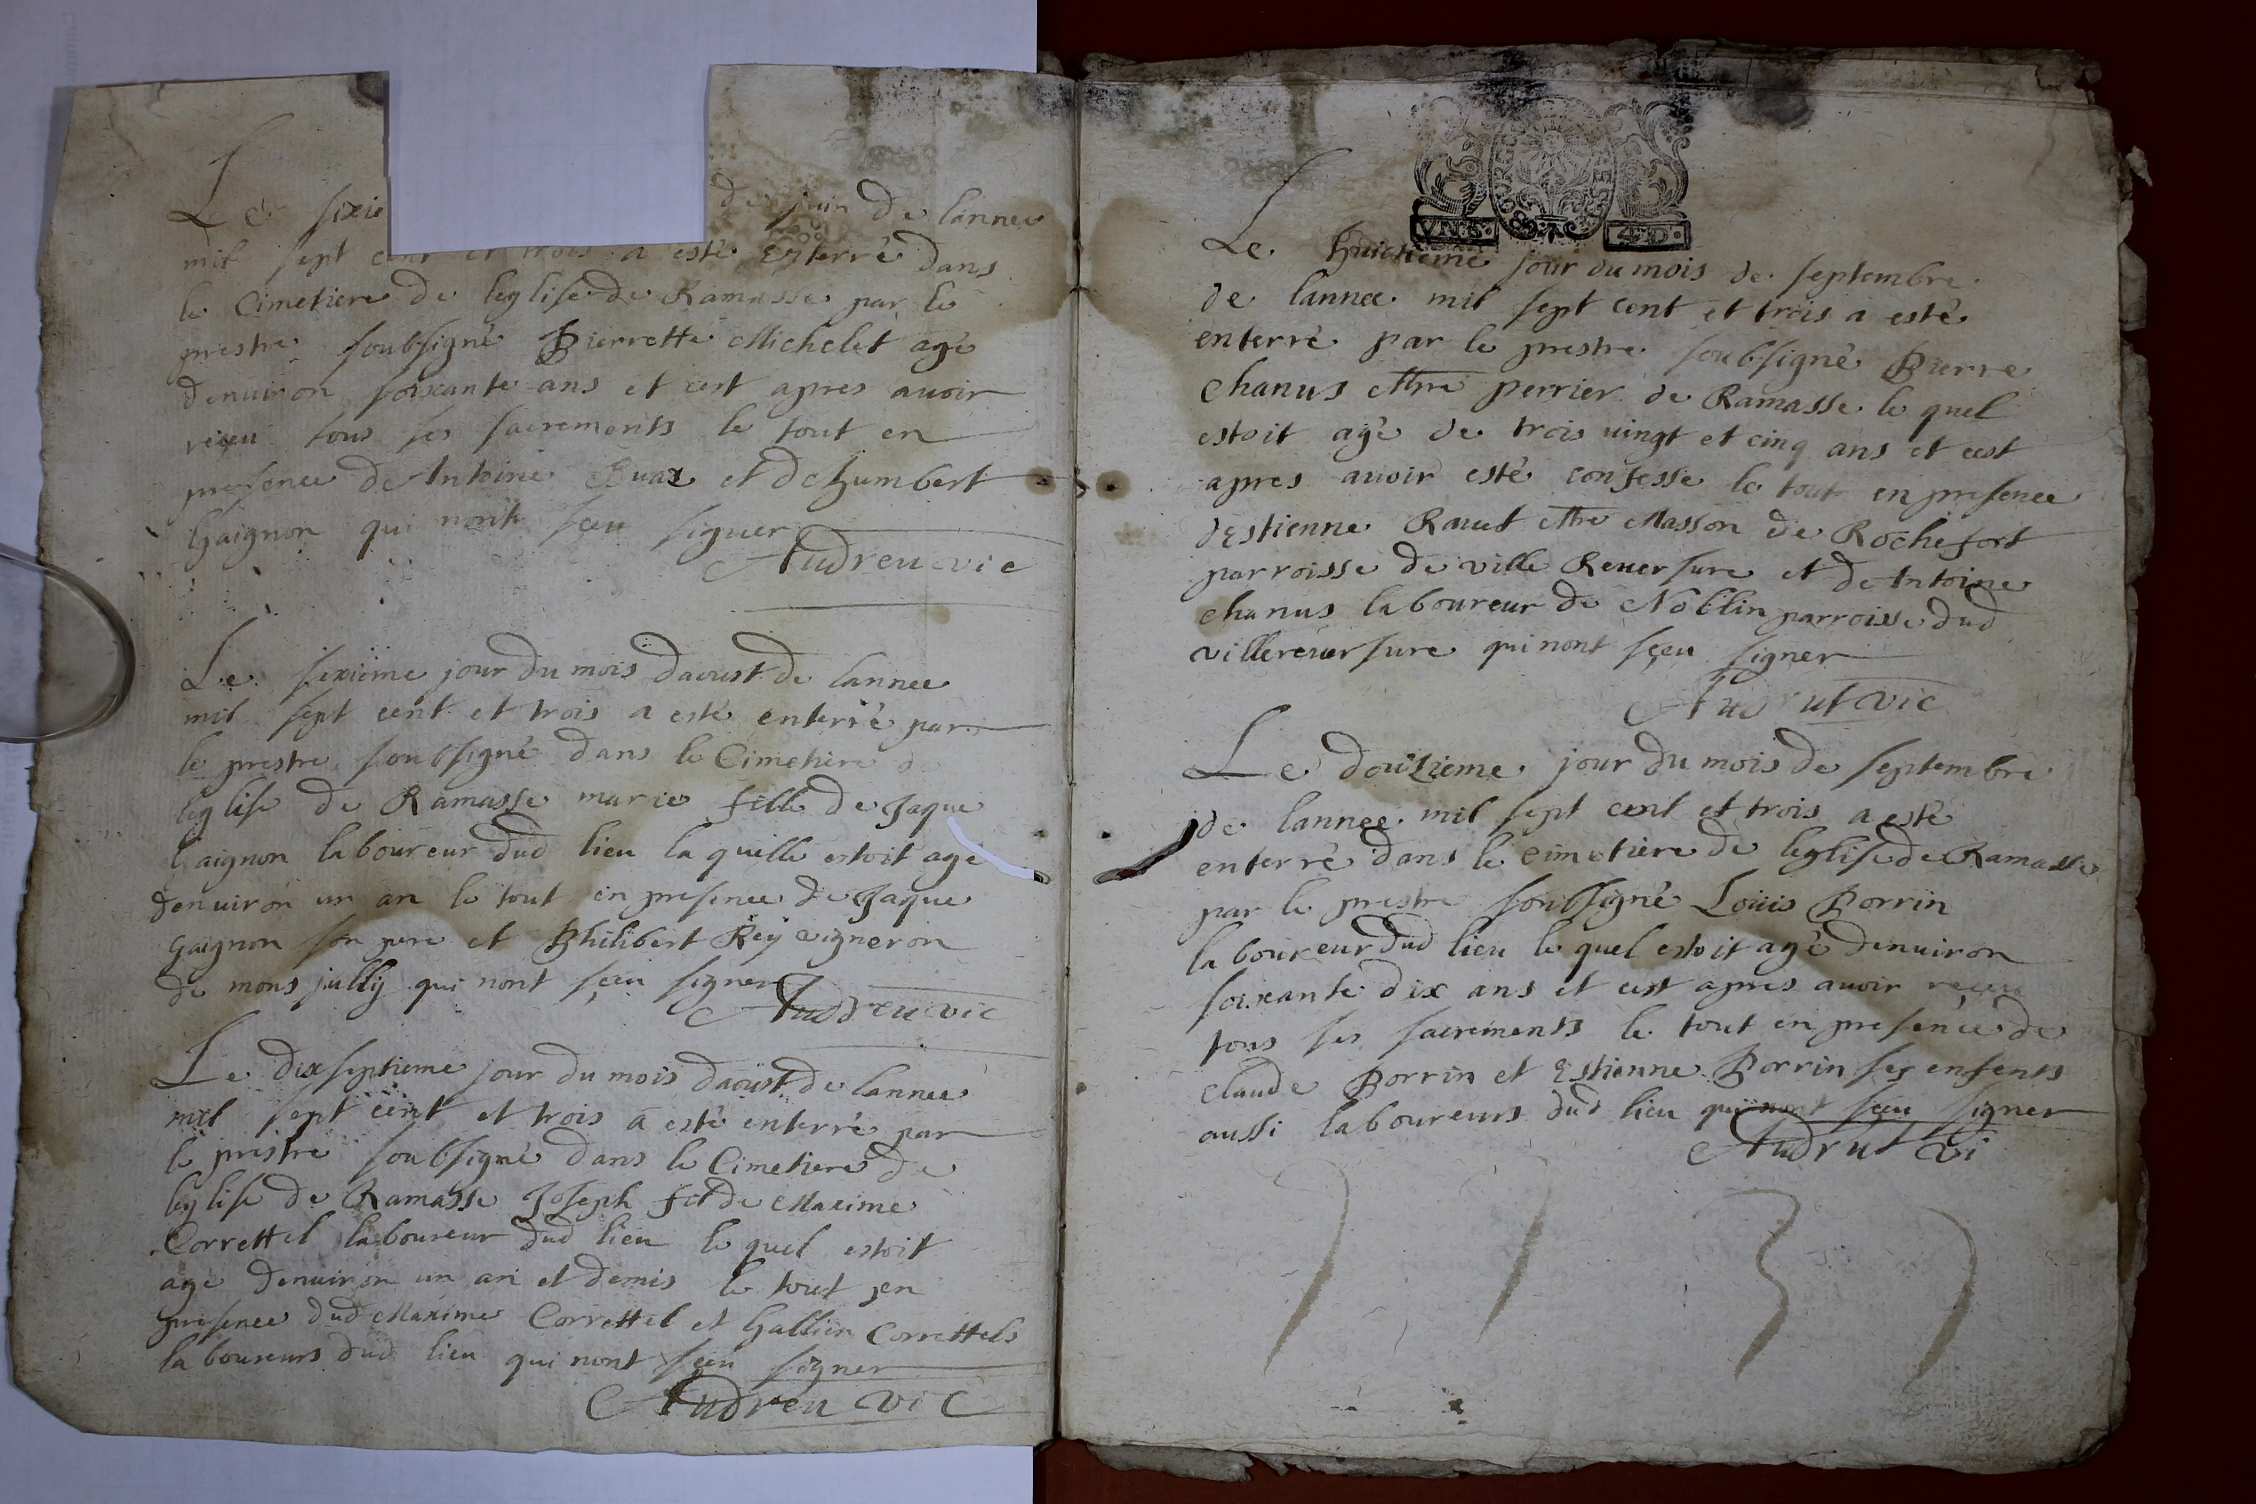 Le sixie de juin de lannee
mil sept cent et trois a esté enterré dans
le Cimetiere de leglise de Ramasse par le
prestre soubsigné Pierrette Michelet agé
denuiron soixante ans et cest apres auoir
reçeu tous ses sacrements le tout en
presence de Antoine et de humbert
Gaignon qui nont sçeu signer
Audreu vic
Le sixieme jour du mois daoust de lannee
mil sept cent et trois a esté enterré par
le prestre soubsigné dans le Cimetiere d
leglise de Ramasse marie fille de Jaque
Gaignon laboureur dud lieu la quelle estoit agé
denuiron un an le tout en presence de Jaque
Gaignon son pere et Philibert Rey vigneron
de mons jully qui nont sçeu signer
Audreu vic
Le dix septieme jour du mois daoust de lannee
mil sept cent et trois a esté enterré par
le prestre soubsigné dans le Cimetiere de
leglise de Ramasse Joseph fil de Maxime
Correttel laboureur dud lieu le quel estoit
agé denuiron un an et demis le tout en
presence dud Maxime Correttel et Gallien Correttels
laboureurs dud lieu qui nont sçeu signer
Audreu vic
VN S. 4 D.
Le huictieme jour du mois de septembre
de lannee mil sept cent et trois a esté
enterré par le prestre soubsigné Pierre
Chanus Mre perrier de Ramasse le quel
estoit agé de trois vingt et cinq ans et cest
apres auoir esté confesse le tout en presence
destienne Rauet Mre Masson de Rochefort
parroisse de ville Reuersure et de Antoine
Chanus laboureur de Noblin parroisse dud
villereuersure qui nont sçeu signer
Audrut vic
Le douzieme jour du mois de septembre
de lannee mil sept cent et trois a esté
enterré dans le cimetiere de leglise de Ramasse
par le prestre soubsigné Louis Porrin
laboureur dud lieu le quel estoit agé denuiron
soixante dix ans et cest apres auoir receu
tous ses sacrements le tout en presence de
Claude Porrin et Estienne Porrin ses enfents
aussi laboureurs dud lieu qui nont sçeu signer
Audrut vi